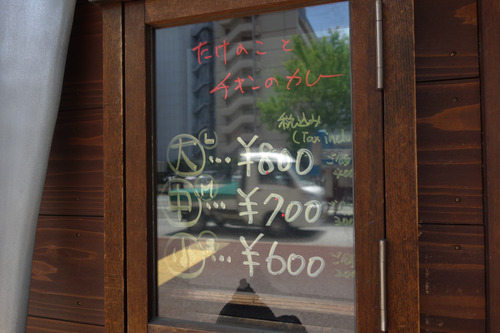 たけのこと
チキンのカレー
税込み
(Tax Inclu
大 L … ¥800
中 M … ¥700
小 S … ¥600